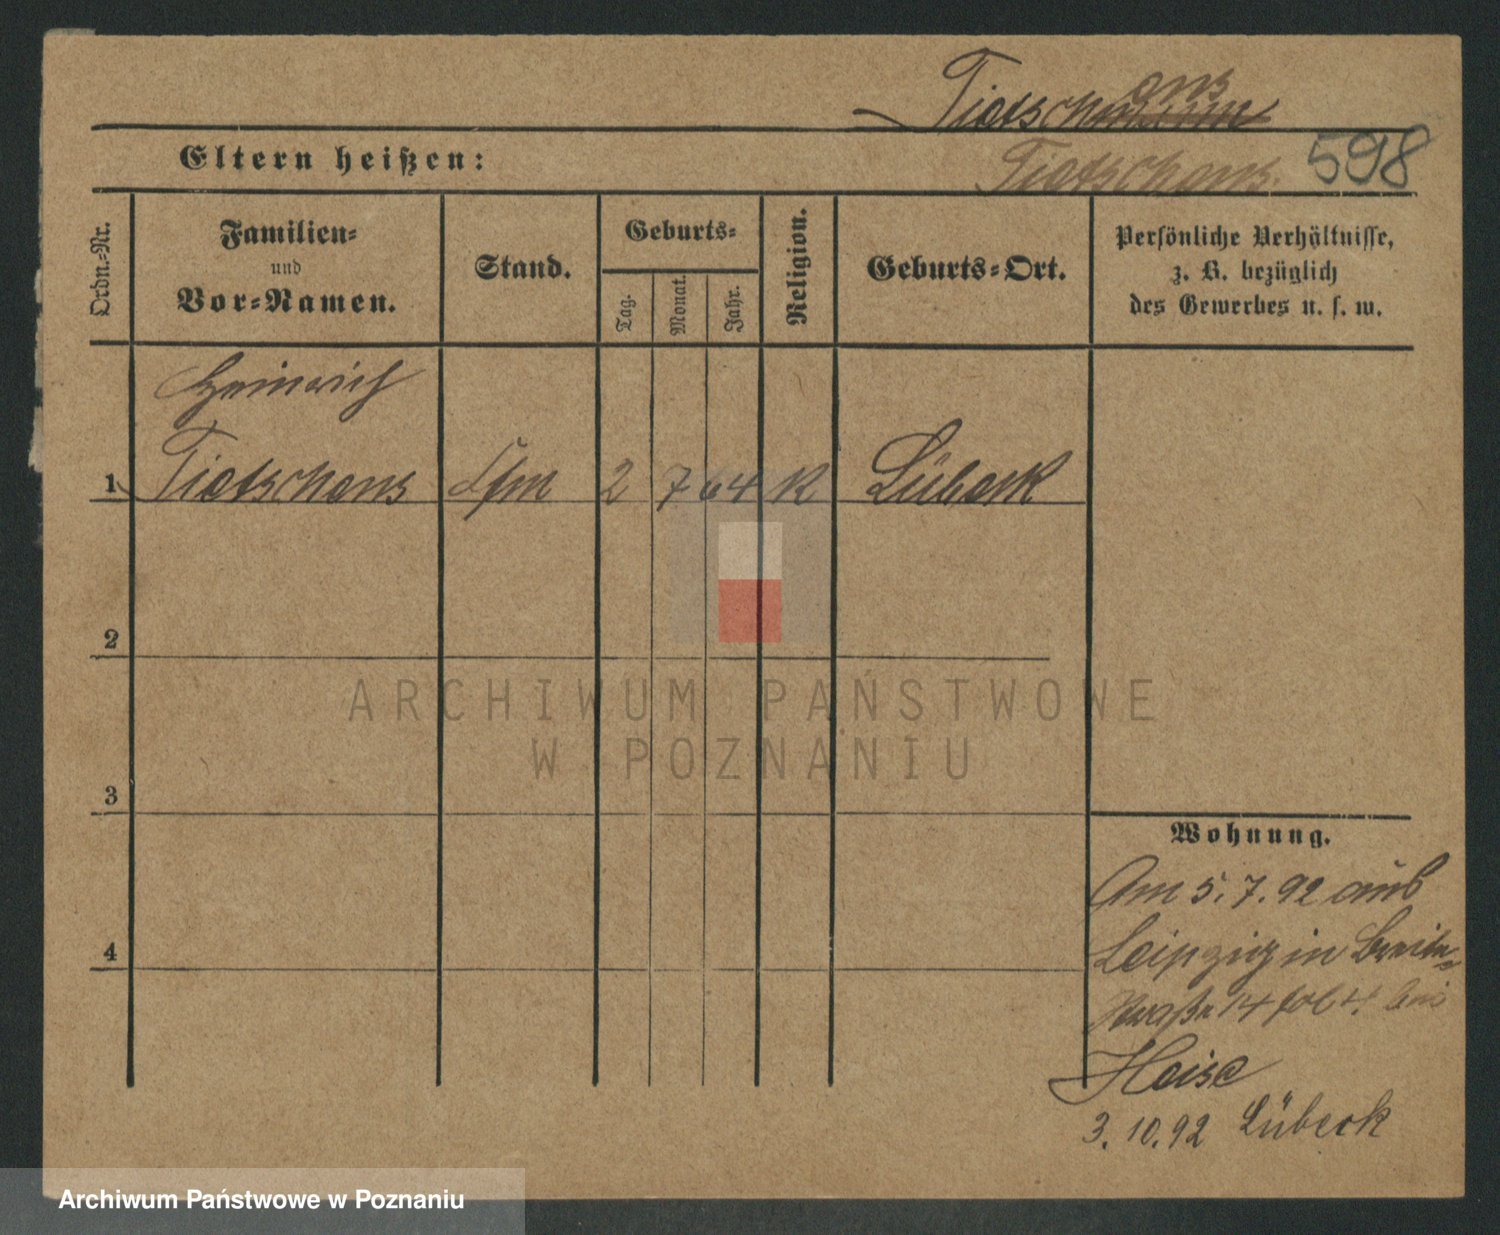 Tietschens
Eltern heißen:
Tietschens. 598
Ordn.-Nr.
Familien-
und
Vor-Namen.
Stand.
Geburts-
Tag.
Monat.
Jahr.
Religion.
Geburts-Ort.
Persönliche Verhältnisse,
z. B. bezüglich
des Gewerbes u. s. w.
Heinrich
1 Tietschens Kfm 2 7 64 K Lübeck
2
ARCHIWUM PAŃSTWOWE
W POZNANIU
3
Wohnung.
Am 5.7.92 aus
4
Leipzig in Breite-
straße 14 bei
Heise
3.10.92 Lübeck
Archiwum Państwowe w Poznaniu